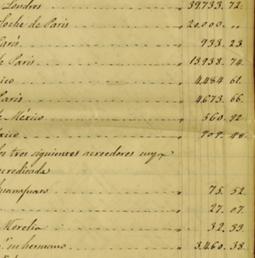 Londres " 39.733. 72.
Roche de Paris " 20.000. ..
París " 933. 23.
de París " 13.958. 74.
xico " 4.484. 61.
Paris " 4.673. 66.
de México " 560. 92.
éxico " 709.
los tres siguientes acreedores cuya
acredicada
Guanajuato " 75. 52.
" 27. 07.
Morelia " 32. 59.
hermano " 3.460. 38.